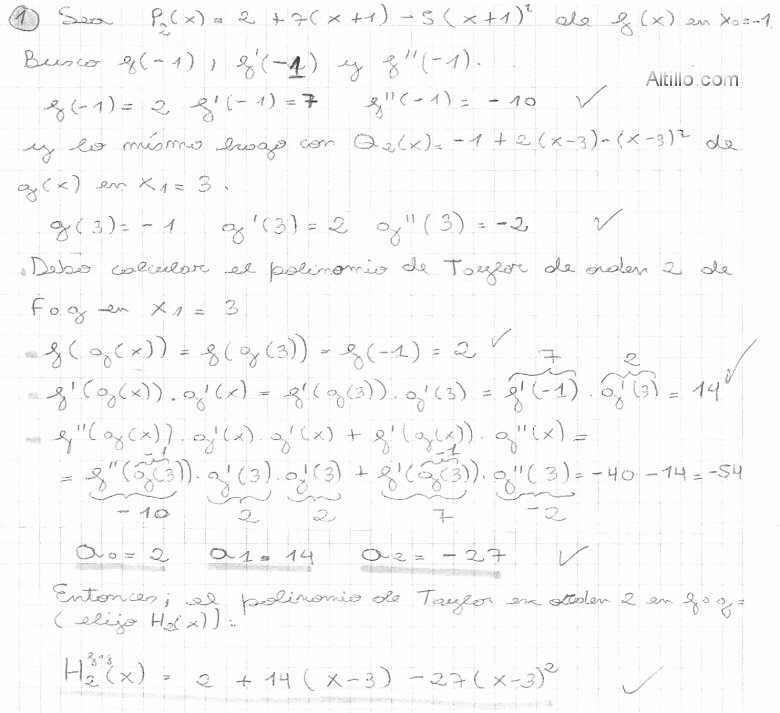 1 Sea P₂(x) = 2 + 7(x+1) - 5(x+1)² de f(x) en x₀=-1.
Busco f(-1), f'(-1) y f''(-1).
Altillo.com
f(-1) = 2 f'(-1) = 7 f''(-1) = -10 ✓
y lo mismo luego con Q₂(x) = -1 + 2(x-3) - (x-3)² de
g(x) en x₁ = 3.
g(3) = -1 g'(3) = 2 g''(3) = -2 ✓
Debo calcular el polinomio de Taylor de orden 2 de
Fog en x₁ = 3
- f(g(x)) = f(g(3)) = f(-1) = 2 ✓
7 2
- f'(g(x)).g'(x) = f'(g(3)).g'(3) = f'(-1).g'(3) = 14 ✓
- f''(g(x)).g'(x).g'(x) + f'(g(x)).g''(x) =
-1 -1
= f''(g(3)).g'(3).g'(3) + f'(g(3)).g''(3) = -40 - 14 = -54
-10 2 2 7 -2
a₀ = 2 a₁ = 14 a₂ = -27 ✓
Entonces, el polinomio de Taylor en orden 2 en fog =
(elijo H₂(x)):
H₂(x) = 2 + 14(x-3) - 27(x-3)² ✓